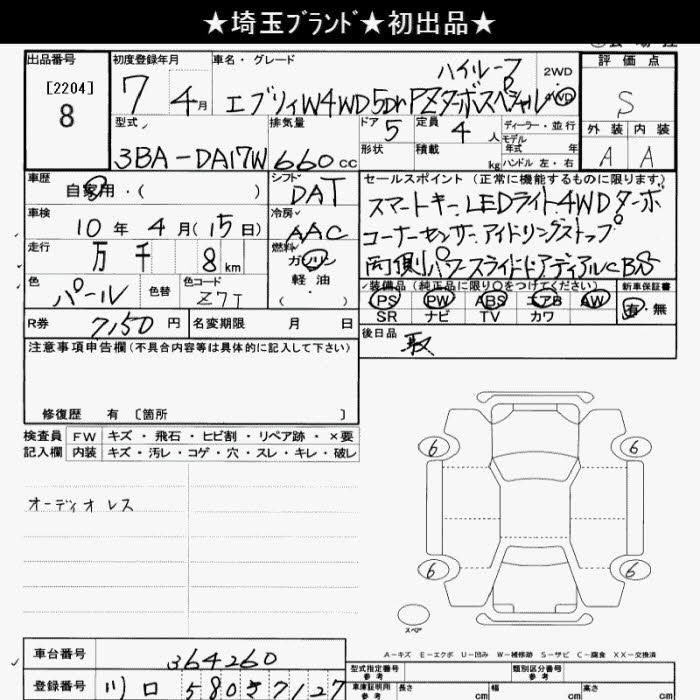 ★埼玉ﾌﾞﾗﾝﾄﾞ★初出品★
出品番号 初度登録年月 車名・グレード 評価点
[2204] 8
7 4月
ハイルーフ 2WD
エブリィW4WD5Dr PZターボスペシャル 4WD
S
型式 排気量 ドア 5 定員 4人 ディーラー・並行 外装 内装
形状 積載 kg モデル年式 年 ハンドル 左・右
3BA-DA17W 660cc A A
車歴 シフト セールスポイント (正常に機能するものに限ります)
自家用・( ) DAT
スマートキー LEDライト 4WD ターボ
車検 冷房
10年 4月(15日) AAC
コーナーセンサー アイドリングストップ
走行 万 千 8km 燃料 ガソリン・軽油 ( )
両側パワースライドドア デュアルCBS
色 パール 色替 色コード Z7T
装備品 (純正品に限り○をつけてください) 新車保証書
PS PW ABS エアB AW 有・無
SR ナビ TV カワ
R券 7,150円 名変期限 月 日
後日品 取
注意事項申告欄 (不具合内容等は具体的に記入して下さい)
修復歴 有 [箇所 ]
検査員 FW キズ・飛石・ヒビ割・リペア跡・×要
記入欄 内装 キズ・汚レ・コゲ・穴・スレ・キレ・破レ
オーディオレス
6 6
6 6
スペア
A-キズ E-エクボ U-凹み W-補修跡 S-サビ C-腐食 XX-交換済
車台番号 364260
型式指定番号 参考 類別区分番号 参考
登録番号 川口 580 さ 7127
車庫証明用 参考 長さ cm 幅 cm 高さ cm